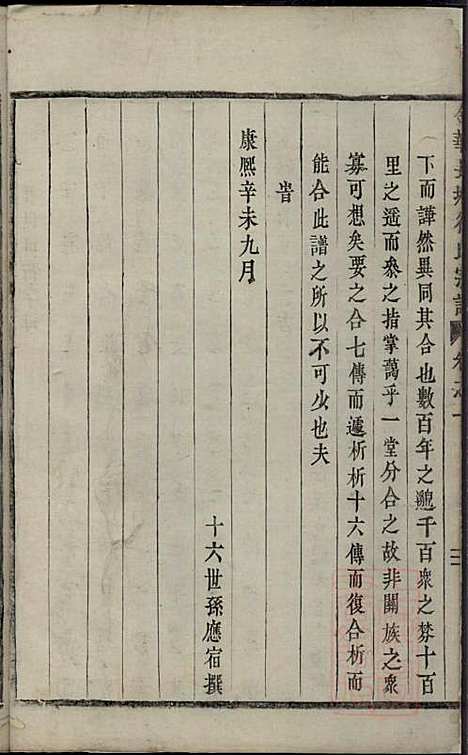 下而譁然異同其合也數百年之邈千百衆之棼十百
里之遥而叅之指掌藹乎一堂分合之故非關族之衆
寡可想矣要之合七傳而遽析析十六傳而復合析而
能合此譜之所以不可少也夫
旹
康熙辛未九月
十六世孫應宿撰